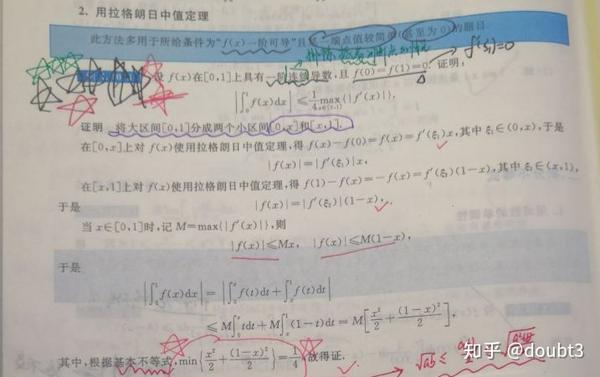 2. 用拉格朗日中值定理
此方法多用于所给条件为“f(x)一阶可导”且某一端点值较简单(甚至为0)的题目.
f'(ξ₁)=0
设 f(x)在[0,1]上具有一阶连续导数,且 f(0)=f(1)=0.证明:
|∫₀¹f(x)dx| ≤ 1/4 max{|f'(x)|}.
证明 将大区间[0,1]分成两个小区间[0,x]和[x,1].
在[0,x]上对 f(x)使用拉格朗日中值定理,得 f(x)-f(0)=f(x)=f'(ξ₁)x,其中 ξ₁∈(0,x),于是
|f(x)|=|f'(ξ₁)|x,
在[x,1]上对 f(x)使用拉格朗日中值定理,得 f(1)-f(x)=-f(x)=f'(ξ₂)(1-x),其中 ξ₂∈(x,1),
于是
|f(x)|=|f'(ξ₂)|(1-x),
当 x∈[0,1]时,记 M=max{|f'(x)|},则
|f(x)|≤Mx, |f(x)|≤M(1-x),
于是
|∫₀¹f(x)dx|=|∫₀ˣf(t)dt+∫ₓ¹f(t)dt|
≤M∫₀ˣtdt+M∫ₓ¹(1-t)dt=M[x²/2+(1-x)²/2],
其中,根据基本不等式,min{x²/2+(1-x)²/2}=1/4,故得证.
√ab ≤
知乎 @doubt3